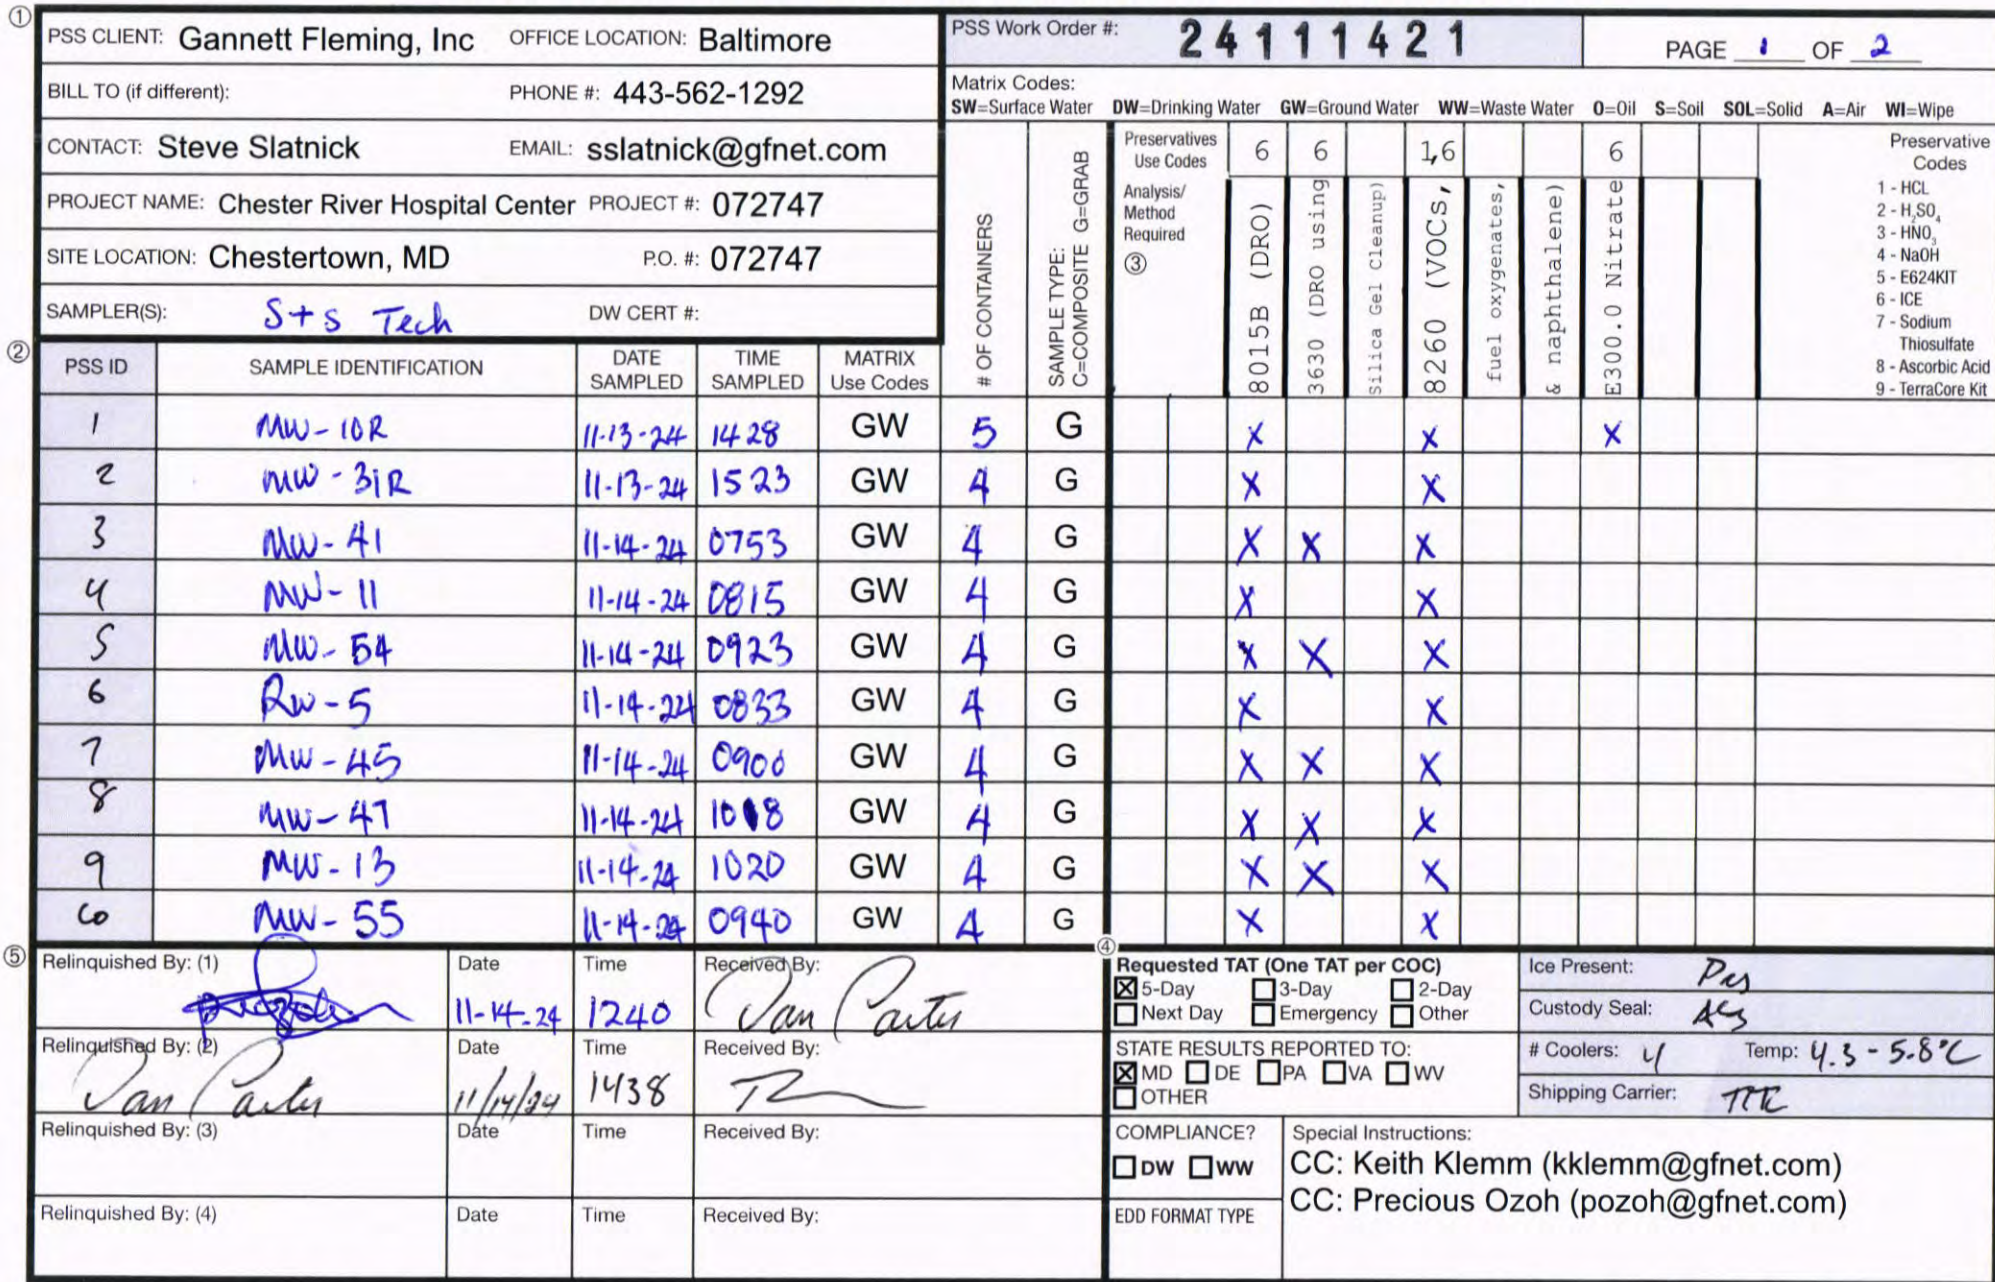 ①
PSS CLIENT: Gannett Fleming, Inc OFFICE LOCATION: Baltimore
BILL TO (if different): PHONE #: 443-562-1292
CONTACT: Steve Slatnick EMAIL: sslatnick@gfnet.com
PROJECT NAME: Chester River Hospital Center PROJECT #: 072747
SITE LOCATION: Chestertown, MD P.O. #: 072747
SAMPLER(S): S+S Tech DW CERT #:
PSS Work Order #: 24111421 PAGE 1 OF 2
Matrix Codes:
SW=Surface Water DW=Drinking Water GW=Ground Water WW=Waste Water O=Oil S=Soil SOL=Solid A=Air WI=Wipe
# OF CONTAINERS
SAMPLE TYPE:
C=COMPOSITE G=GRAB
Preservatives
Use Codes
6 6 1,6 6
Analysis/
Method
Required
③
8015B (DRO)
3630 (DRO using
Silica Gel Cleanup)
8260 (VOCs,
fuel oxygenates,
& naphthalene)
E300.0 Nitrate
Preservative
Codes
1 - HCL
2 - H₂SO₄
3 - HNO₃
4 - NaOH
5 - E624KIT
6 - ICE
7 - Sodium
Thiosulfate
8 - Ascorbic Acid
9 - TerraCore Kit
②
PSS ID SAMPLE IDENTIFICATION DATE SAMPLED TIME SAMPLED MATRIX Use Codes
1 MW-10R 11-13-24 1428 GW 5 G X X X
2 MW-31R 11-13-24 1523 GW 4 G X X
3 MW-41 11-14-24 0753 GW 4 G X X X
4 MW-11 11-14-24 0815 GW 4 G X X
5 MW-54 11-14-24 0923 GW 4 G X X X
6 RW-5 11-14-24 0833 GW 4 G X X
7 MW-45 11-14-24 0900 GW 4 G X X X
8 MW-47 11-14-24 1018 GW 4 G X X X
9 MW-13 11-14-24 1020 GW 4 G X X X
10 MW-55 11-14-24 0940 GW 4 G X X
⑤
Relinquished By: (1) Date 11-14-24 Time 1240 Received By: Dan Carter
Relinquished By: (2) Dan Carter Date 11/14/24 Time 1438 Received By:
Relinquished By: (3) Date Time Received By:
Relinquished By: (4) Date Time Received By:
④
Requested TAT (One TAT per COC)
☒ 5-Day ☐ 3-Day ☐ 2-Day
☐ Next Day ☐ Emergency ☐ Other
STATE RESULTS REPORTED TO:
☒ MD ☐ DE ☐ PA ☐ VA ☐ WV
☐ OTHER
COMPLIANCE?
☐ DW ☐ WW
EDD FORMAT TYPE
Ice Present:
Custody Seal:
# Coolers: 4 Temp: 4.3 - 5.8°C
Shipping Carrier:
Special Instructions:
CC: Keith Klemm (kklemm@gfnet.com)
CC: Precious Ozoh (pozoh@gfnet.com)